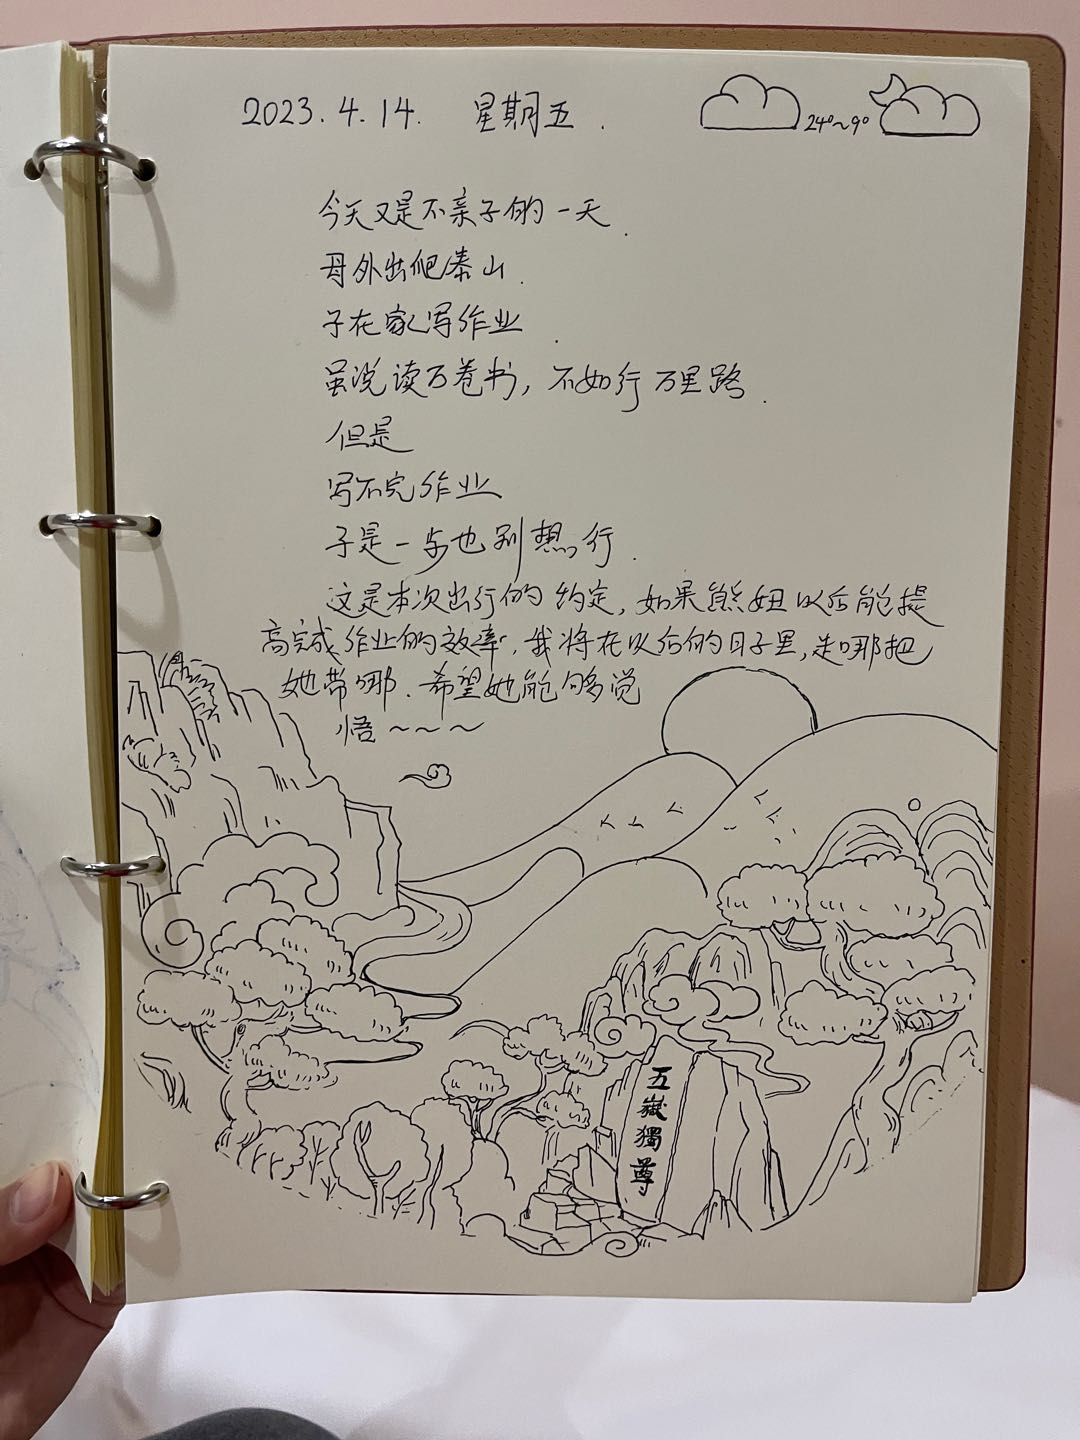 2023.4.14. 星期五.
24°~9°
今天又是不亲子的一天.
母外出爬泰山.
子在家写作业.
虽说读万卷书,不如行万里路.
但是
写不完作业
子是一步也别想行.
这是本次出行的约定,如果熊妞以后能提
高完成作业的效率,我将在以后的日子里,走哪把
她带哪.希望她能够觉
悟~~~
五嶽獨尊